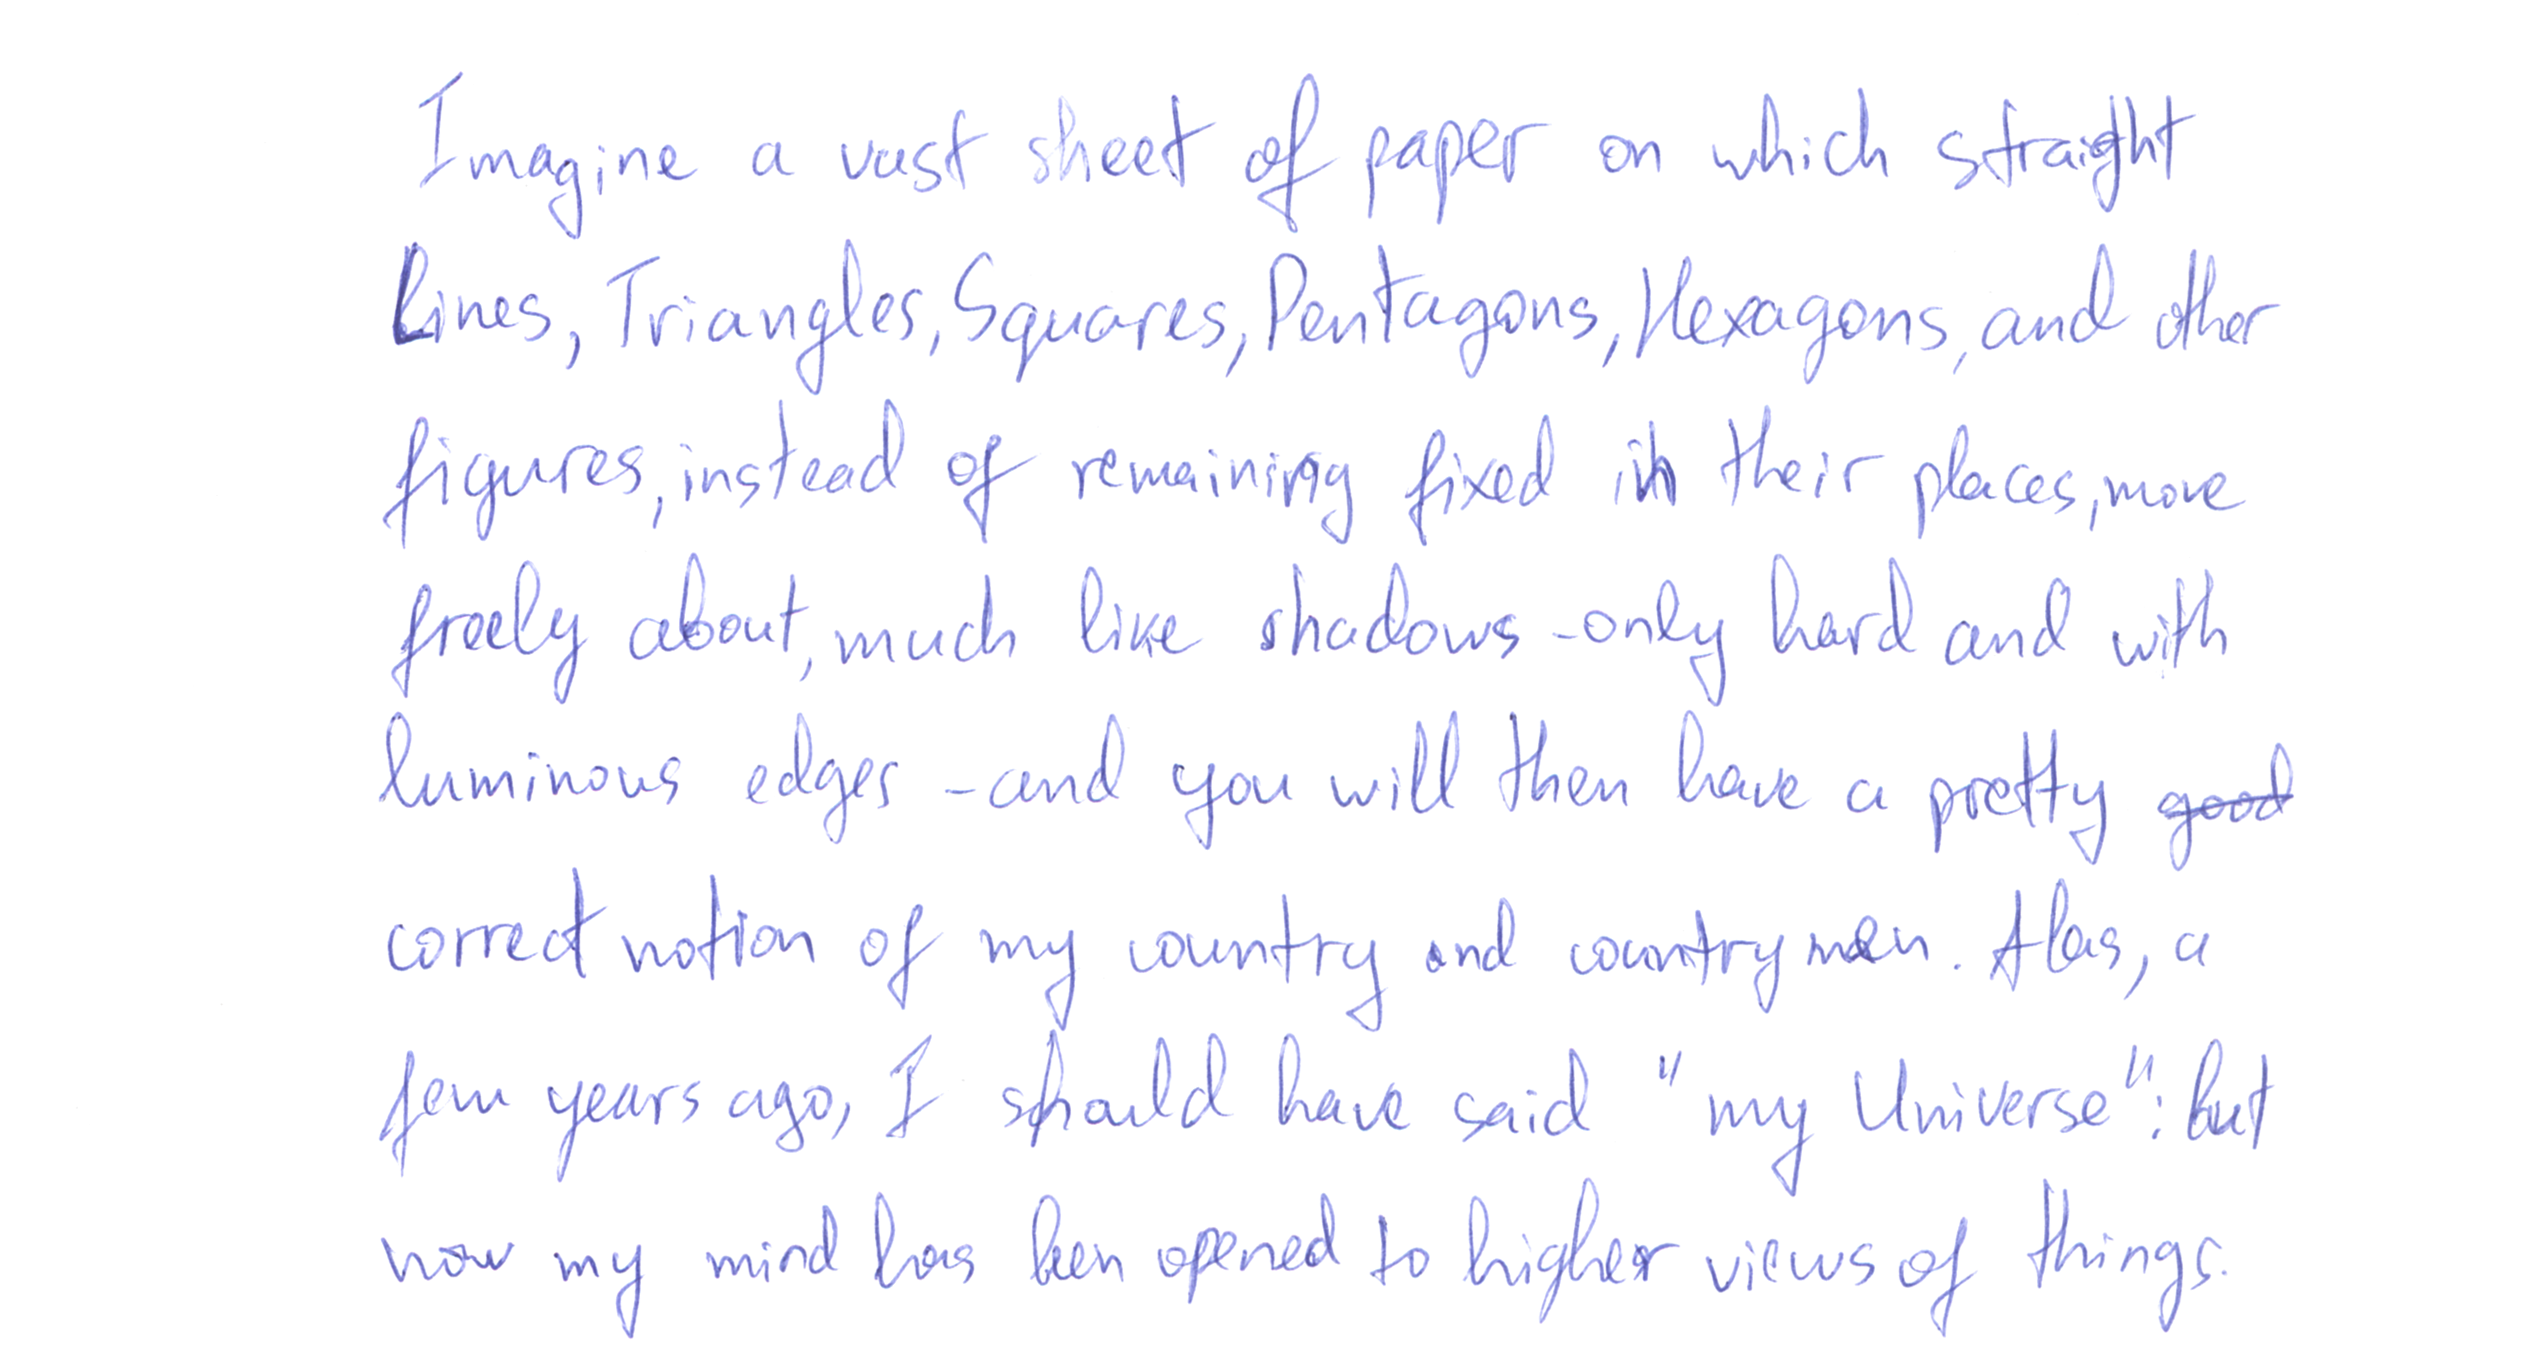 Imagine a vast sheet of paper on which straight
Lines, Triangles, Squares, Pentagons, Hexagons, and other
figures, instead of remaining fixed in their places, move
freely about, much like shadows - only hard and with
luminous edges - and you will then have a pretty ~~good~~
correct notion of my country and countrymen. Alas, a
few years ago, I should have said "my Universe": but
now my mind has been opened to higher views of things.